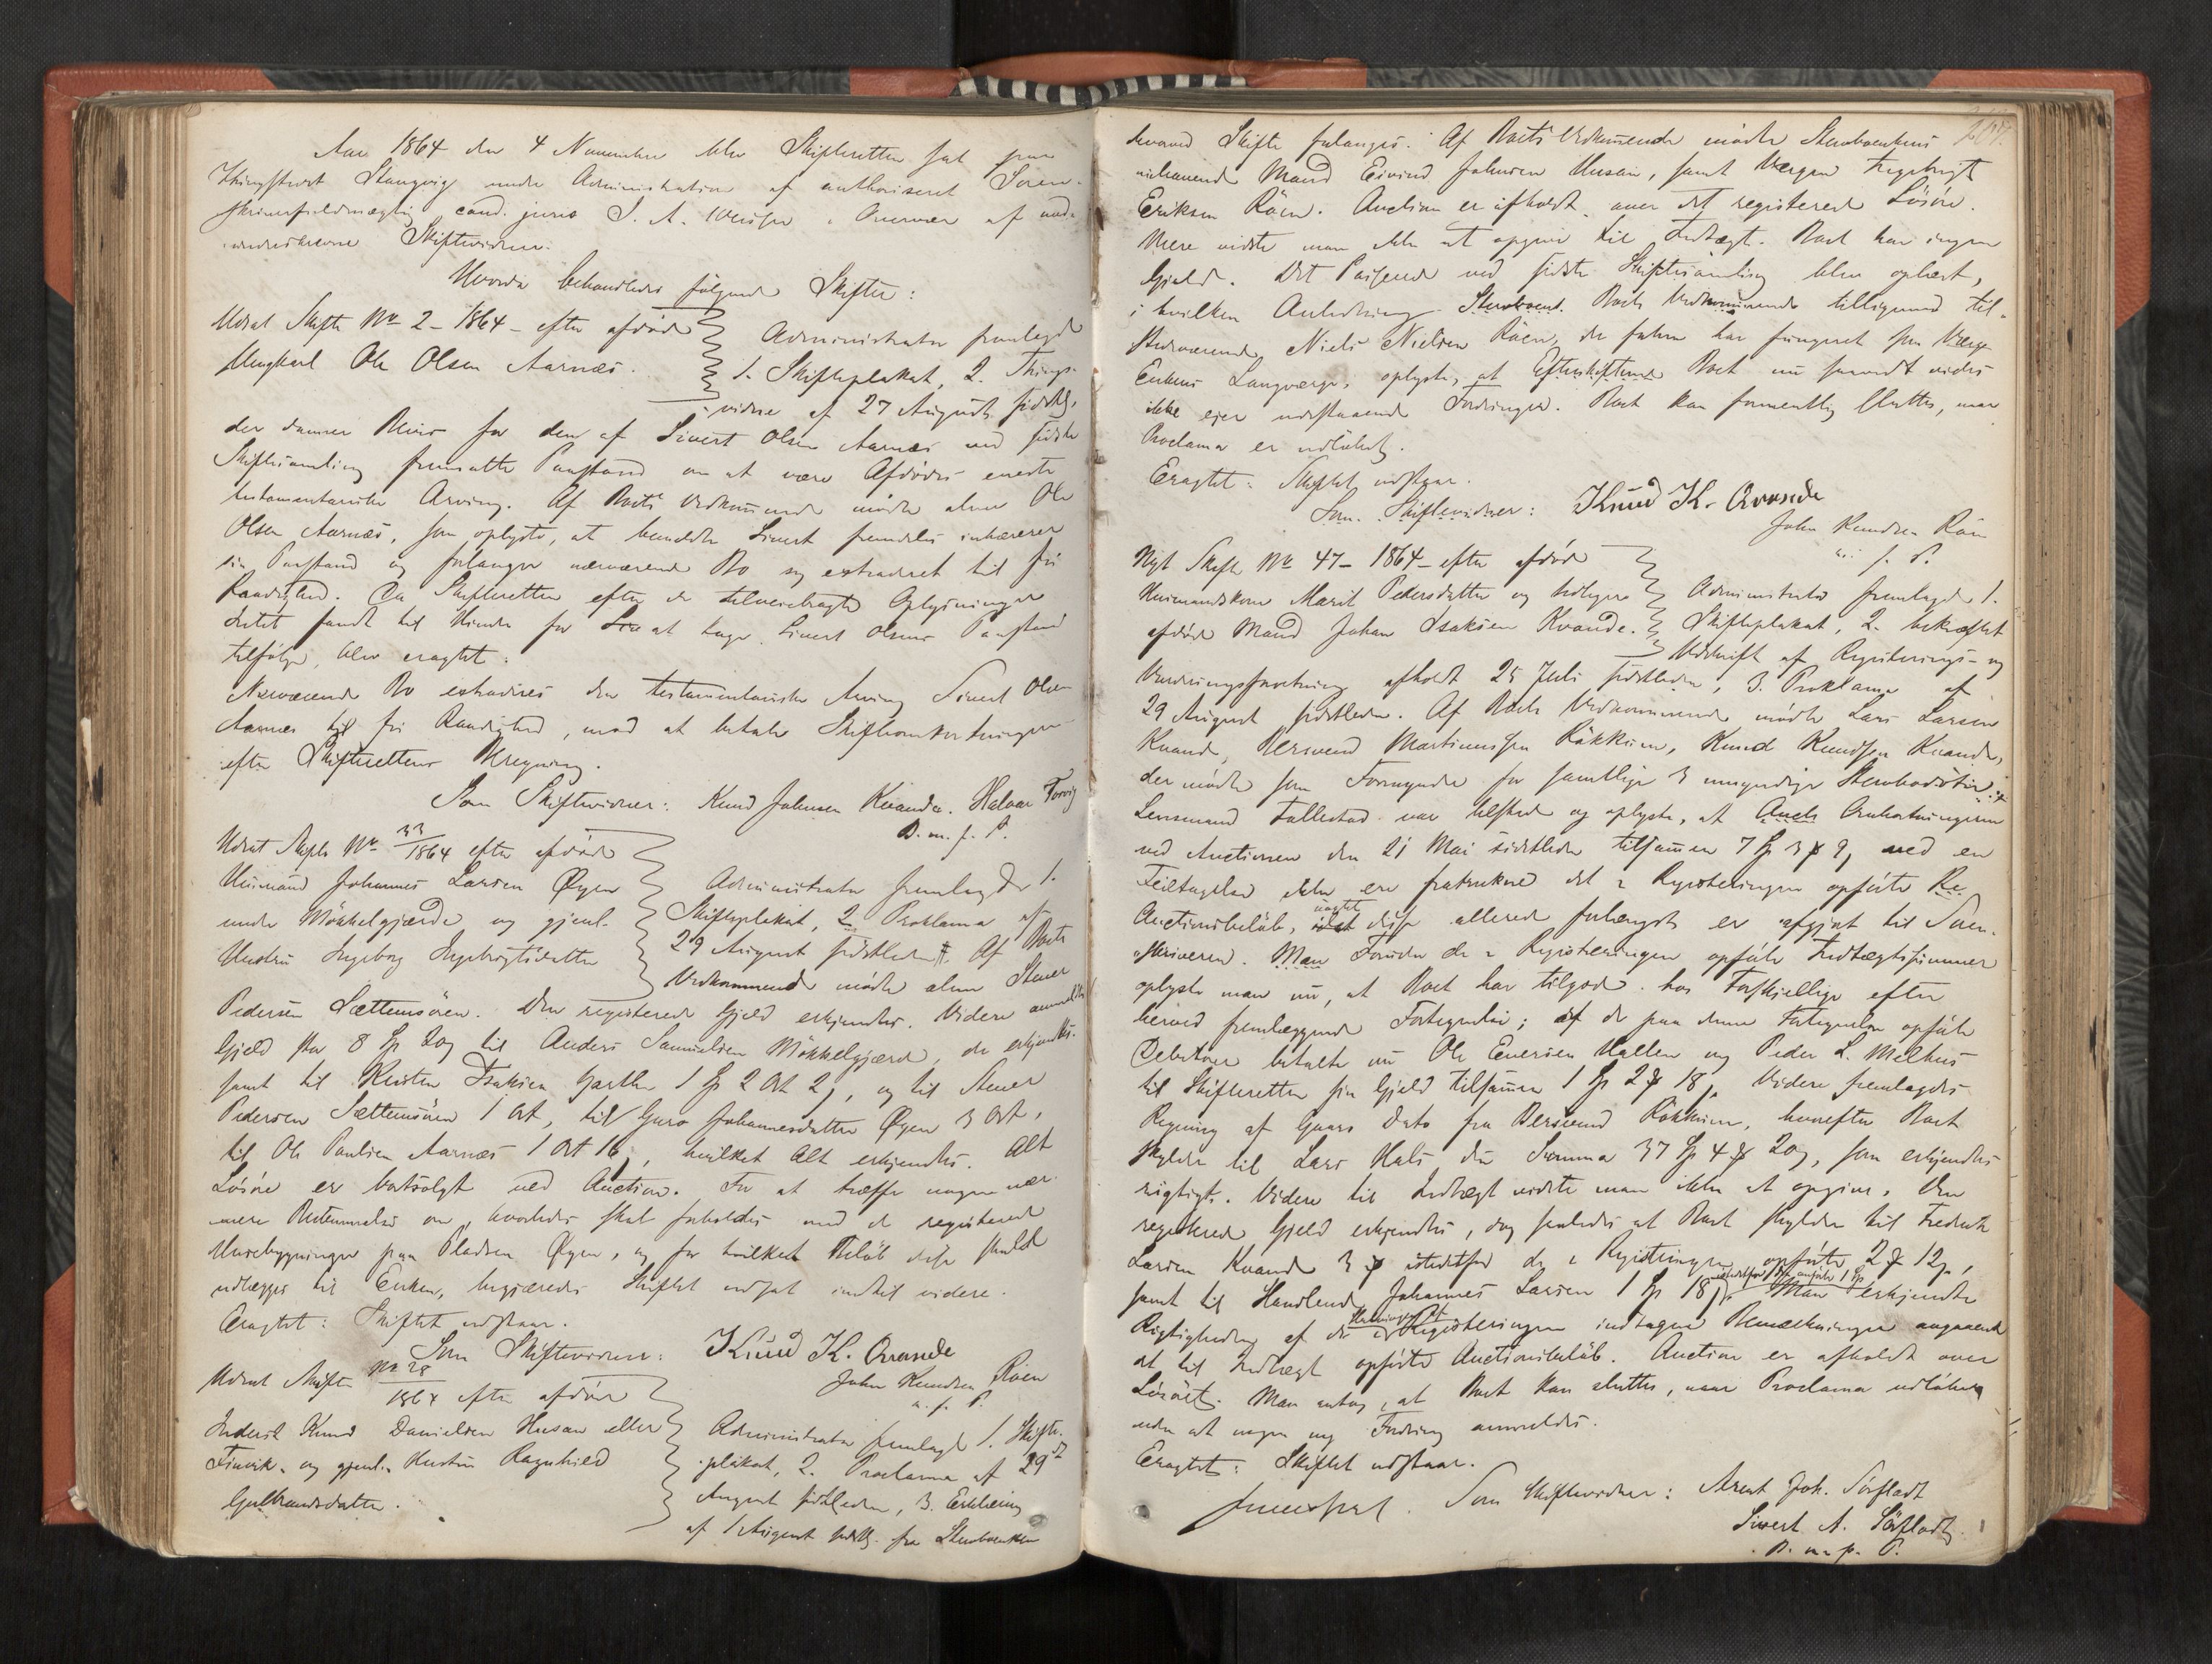 Aar 1864 den 4 November blev Skifteretten sat paa
Thingstuen Stangvig under Administration af authoriseret Soren-
skriverfuldmægtig cand. juris S. A. i Overvær af
Skiftevidner.
Hvorda behandledes følgende Skifter:
Udsat Skifte No 2 - 1864 - efter afdøde
Ungkarl Ole Olsen Aarnæs.
Administrator fremlagde
1. Skifteplakat, 2. Things-
vidne af 27 August sidstl,
der danner Beviis for den af Sivert Olsen Aarnæs ved sidste
Skiftesamling fremsatte Paastand om at være Afdødes eneste
testamentariske Arving. Af Boets Vedkommende mødte alene Ole
Olsen Aarnæs, som oplyste, at bemeldte Sivert fremdeles inhærerer
sin Paastand og forlanger nærværende Bo sig extraderet til fri
Raadighed. Da Skifteretten efter de tilveiebragte Oplysninger
Intet fandt til Hinder for at tage Sivert Olsens Paastand
tilfølge, blev eragtet:
Nærværende Bo extraderes den testamentariske Arving Sivert Olsen
Aarnæs til fri Raadighed, mod at betale Skifteomkostningerne
efter Skifterettens Beregning.
Som Skiftevidner: Knud Johnsen Kvande. Halvor Torvig
m. f. P.
Udsat Skifte No 33/1864 efter afdøde
Huusmand Johannes Larsen Øyen
under Mökkelgjærde og gjenl.
Hustru Ingeborg Ingebrigtsdatter
Administrator fremlagde 1.
Skifteplakat, 2 Proklama af
29 August sidstleden. Af Boets
Vedkommende mødte alene Stener
Pedersen Sættemsören. Den registerede Gjeld erkjendtes. Videre anmeldtes
Gjeld stor 8 Sp 20 s til Anders Samuelsen Mökkelgjærd, der erkjendtes.
samt til Kirsten Isaksen 1 Sp 2 Ort 2 s, og til Stener
Pedersen Sættemsören 1 Ort, til Guro Johannesdatter Øyen 3 Ort,
til Ole Paulsen Aarnæs 1 Ort 16 s, hvilket Alt erkjendtes. Alt
Lösöre er bortsolgt ved Auction. For at træffe nogen nær-
mere Bestemmelse om, hvorledes skal forholdes med de registerede
Huusebygninger paa Pladsen Øyen, og for hvilket Beløb disse skulde
udlægges til Enken, begjæredes Skiftet udsat indtil videre.
Eragtet: Skiftet udstaar.
Som Skiftevidner: Knud K. Qvande
John Knudsen Röen
m. f. P.
Udsat Skifte No 28/1864 efter afdøde
Inderst Knud Danielsen Husan eller
og gjenl. Hustru Ragnhild
Gulbrandsdatter.
Administrator fremlagde 1. Skifte-
plakat, 2. Proclama af 29de
August sidstleden, 3. Erklæring
af 1 August sidstl. fra Stervboenken
hvorved Skifte forlanges. Af Boets Vedkommende mødte Stervboenkens
nuhavende Mand Eivind Johnsen Husan, samt Værgen Ingebrigt
Eriksen Röen. Auction er afholdt over det registerede Lösöre.
Mere vidste man ikke at opgive til Indtægt. Boet har ingen
Gjæld. Det Passerede ved sidste Skiftesamling blev oplæst,
i hvilken Anledning Boets Vedkommende tilligemed til-
stedeværende Niels Nielsen Röen, der forhen har fungeret som Værge
Enkens Laugværge, oplyste, at Boet nu saavidt vides
ikke ejer udestaaende Fordringer. Boet kan formentlig sluttes, naar
Proclama er udløbet.
Eragtet: Skiftet udstaar.
Som Skiftevidner: Knud K. Qvande
John Knudsen Röen
m. f. P.
Nyt Skifte No 47 - 1864 - efter afdøde
Huusmandskone Marit Pedersdatter og tidligere
afdøde Mand Johan Isaksen Kvande.
Administrator fremlagde 1.
Skifteplakat, 2. bekræftet
Udskrift af Registerings- og
Vurderingsforretning afholdt 25 Juli sidstleden, 3. Proklama af
29 August sidstleden. Af Boets Vedkommende mødte Lars Larsen
Kvande, Bersvend Martinussen Räkkum, Knud Knudsen Kvande,
der mødte som Formynder for samtlige 3 umyndige Stervbodötre.
Lensmand Tallestad var tilstede og oplyste, at Omkostningerne
ved Auctionen den 21 Mai sidstleden tilsammen 7 Sp 9 s, ved en
Feiltagelse ikke ere fratrukne det i Registeringen opførte
Auctionsbeløb, uagtet disse allerede forlængst er afgjort til Soren-
skriveren. Foruden de i Registeringen opførte Indtægtssummer
oplyste man nu, at Boet har tilgode hos Forskjellige efter
herved fremlæggende Fortegnelse; af de paa denne Fortegnelse opførte
Debitorer betalte nu Ole Evensen Hallen og Peder L. Melhus
til Skifteretten sin Gjeld tilsammen 1 Sp 2 18 s. Videre fremlagdes
Regning af Gaars Dato fra Bersvend Räkkum, hvorefter Boet
skylder til Lars Hals den Summa 37 Sp 4 20 s, som erkjendtes
rigtigt. Videre til Indtægt vidste man ikke at opgive. Den
registerede Gjeld erkjendtes, dog saaledes at Boet skylder til Fredrik
Larsen Kvande 3 istedetfor de i Registeringen opførte 2 12 s,
samt til Handlende Johannes Larsen 1 Sp 18 s istedetfor opførte 1 Sp. Man erkjendte
Rigtigheden af de i Registeringen indtagne Bemærkninger angaaende
det til Indtægt opførte Auctionsbeløb. Auction er afholdt over
Lösöret. Man antog, at Boet kan sluttes, naar Proclama udløber
uden at nogen ny Fordring anmeldes.
Eragtet: Skiftet udstaar.
Som Skiftevidner: Arent Joh. Sörfladt
Sivert A. Sörfladt
m. p. P.